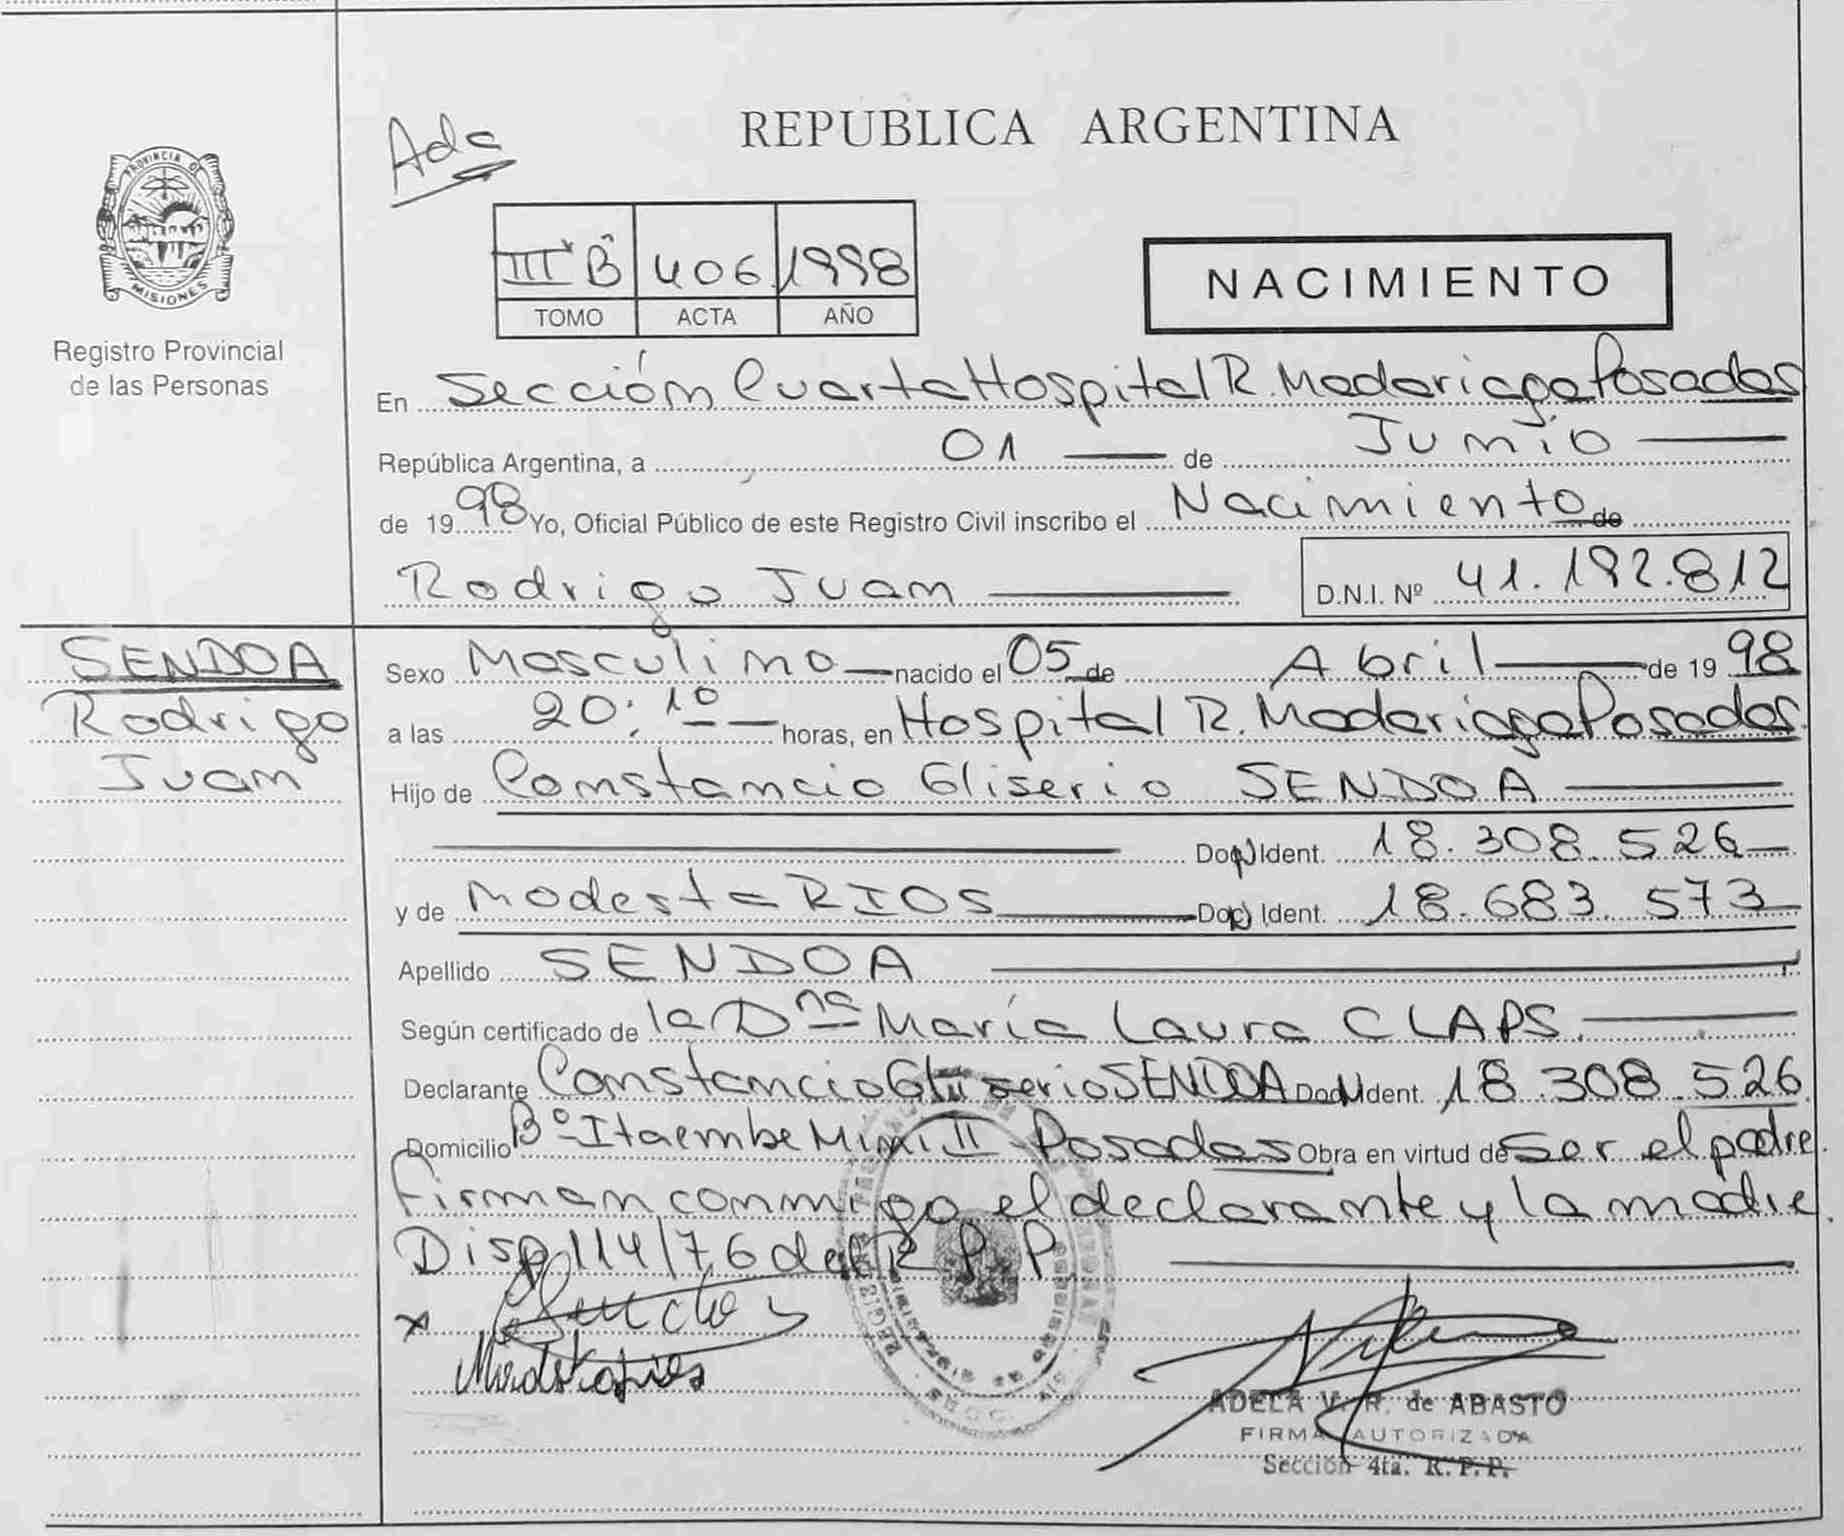 REPUBLICA ARGENTINA
Ada
PROVINCIA DE
MISIONES
Registro Provincial
de las Personas
III B 406 1998
TOMO ACTA AÑO
NACIMIENTO
En Sección Cuarta Hospital R. Madariaga Posadas
República Argentina, a 01 de Junio
de 19 98 Yo, Oficial Público de este Registro Civil inscribo el Nacimiento de
Rodrigo Juan D.N.I. Nº 41.192.812
SENDOA
Rodrigo
Juan
Sexo Masculino nacido el 05 de Abril de 19 98
a las 20:10 horas, en Hospital R. Madariaga Posadas.
Hijo de Constancio Gliserio SENDOA
Doc. Ident. 18.308.526
y de Modesta RIOS Doc. Ident. 18.683.573
Apellido SENDOA
Según certificado de la Dna María Laura CLAPS.
Declarante Constancio Gliserio SENDOA Doc. Ident. 18.308.526
Domicilio Bº Itaembe Mini II Posadas Obra en virtud de ser el padre.
Firman conmigo el declarante y la madre.
Disp 114/76 del R.P.P.
ADELA V. R. de ABASTO
FIRMA AUTORIZADA
Sección 4ta. R.P.P.